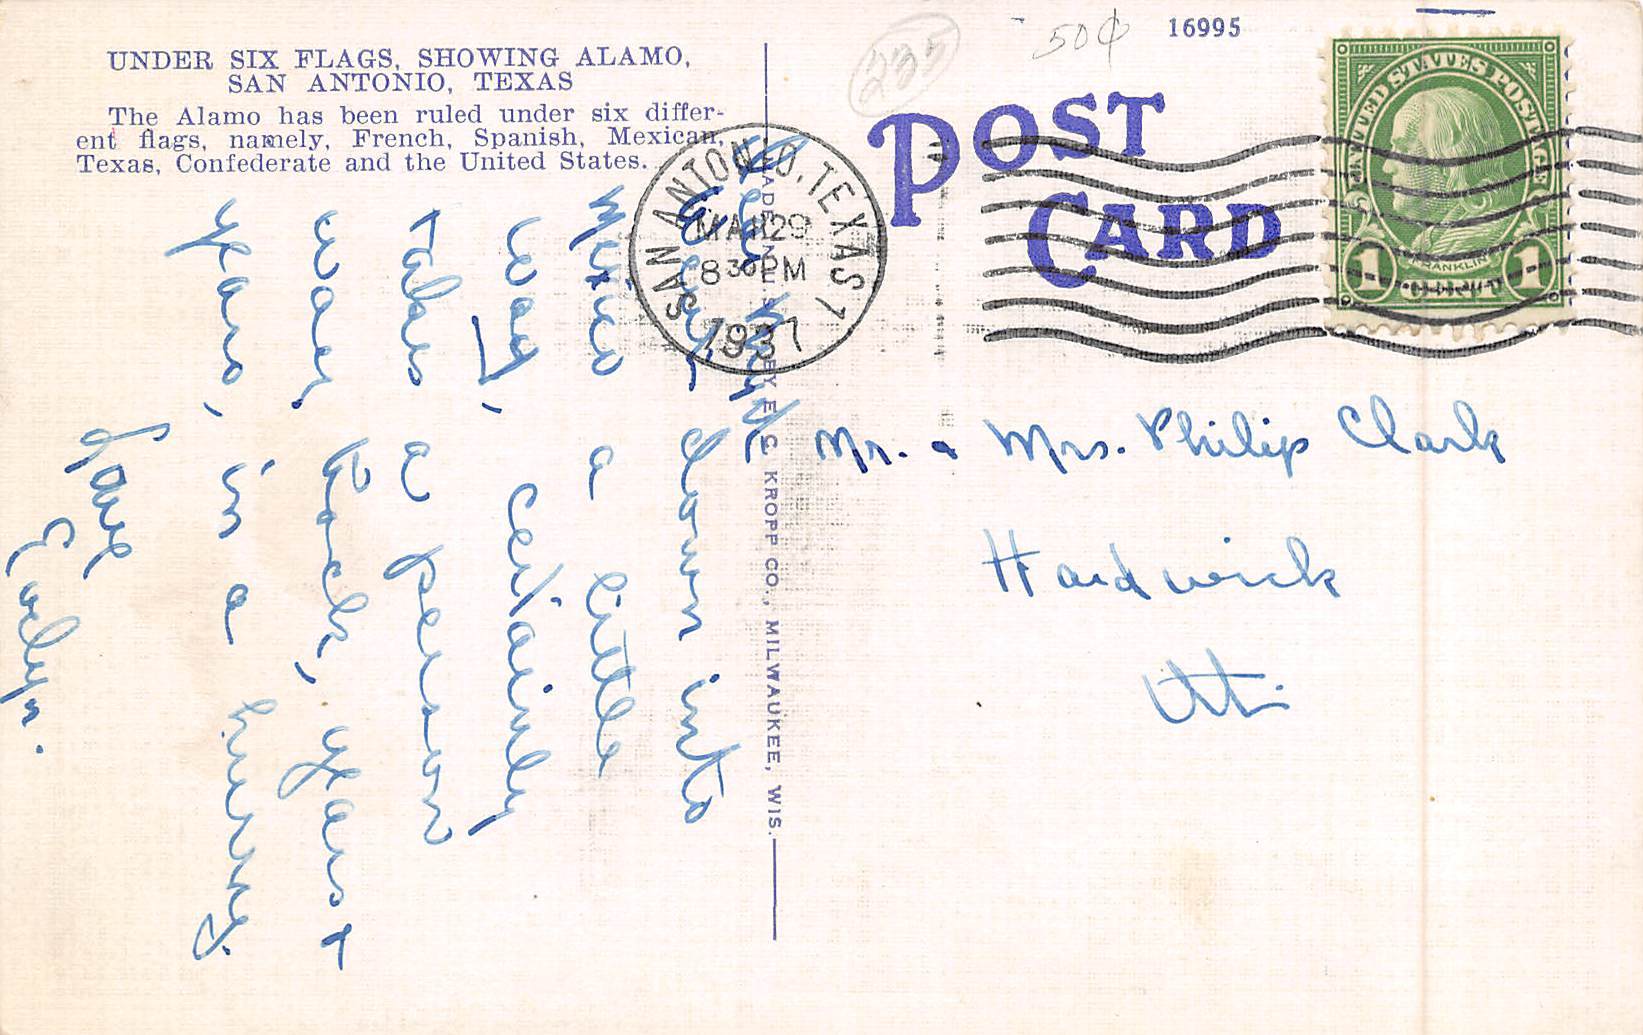 235
50¢
16995
UNDER SIX FLAGS, SHOWING ALAMO,
SAN ANTONIO, TEXAS
The Alamo has been ruled under six differ-
ent flags, namely, French, Spanish, Mexican,
Texas, Confederate and the United States.
POST
CARD
UNITED STATES POSTAGE
FRANKLIN
1 CENT 1
SAN ANTONIO, TEXAS 1
MAR 29
8 30 PM
1937
MADE ONLY BY E. C. KROPP CO., MILWAUKEE, WIS.
Mr. & Mrs. Philip Clark
Hardwick
Vt.
Dear
down into
Mexico a little
way, certainly
takes a person
way, Back, years +
years, in a hurry.
Love
Evelyn.